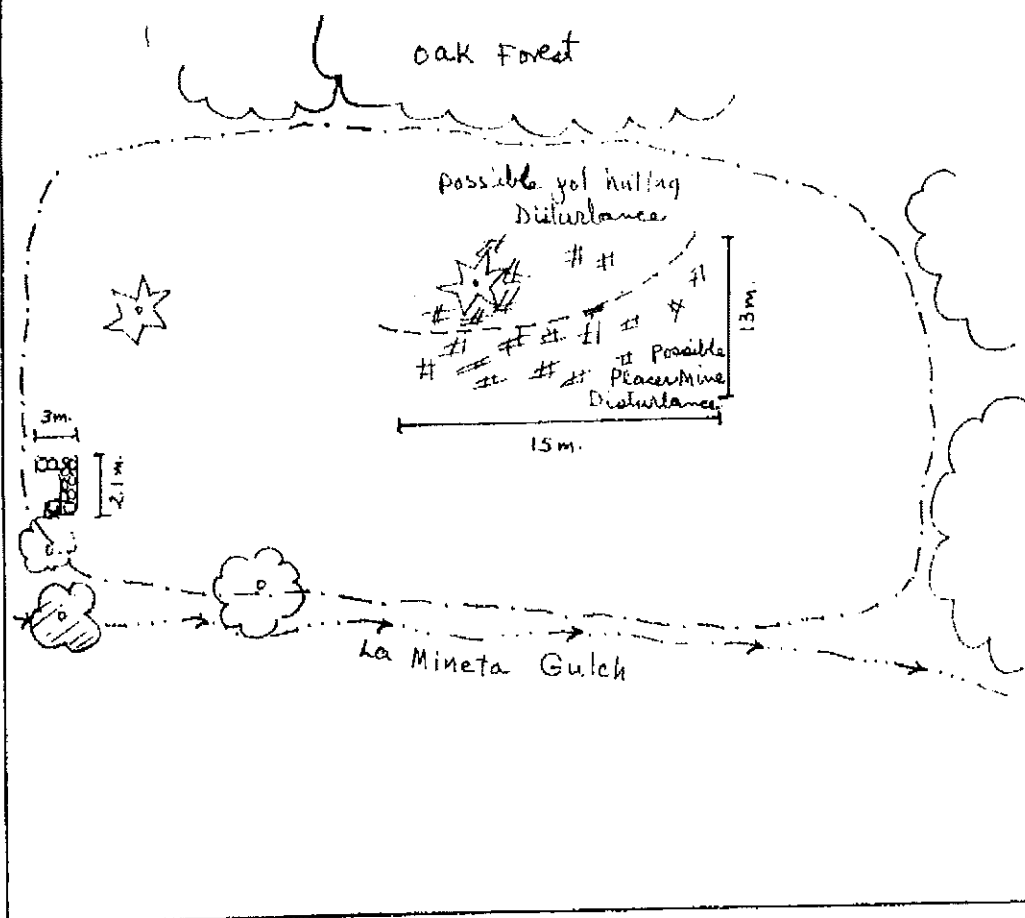 Oak Forest
Possible pot hunting
Disturbance
13m.
Possible
Placer Mine
Disturbance
15m.
3m.
2.1m.
La Mineta Gulch